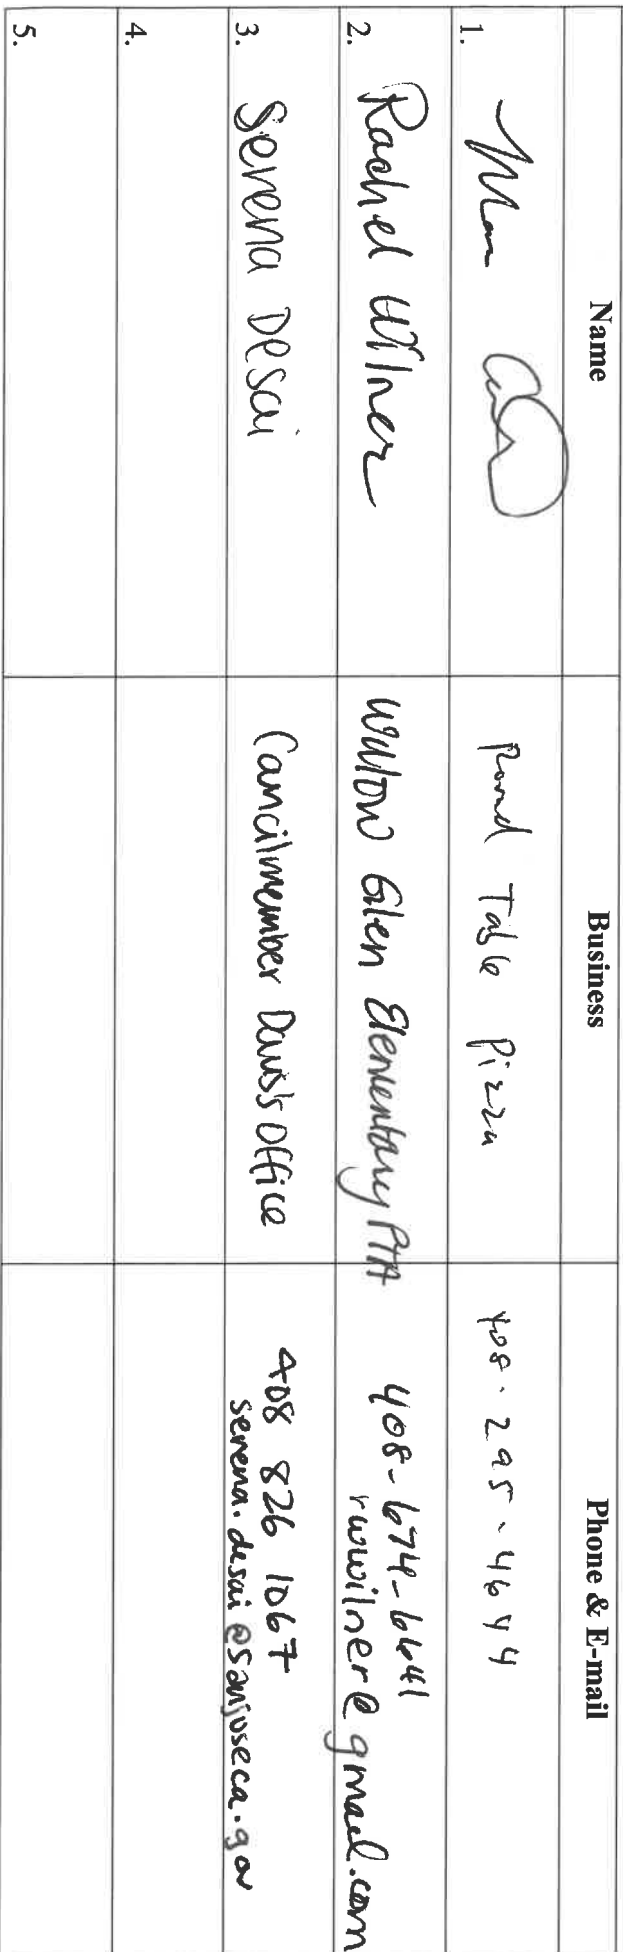 Name Business Phone & E-mail
1. Round Table Pizza 408-295-4644
2. Rachel Wilner Willow Glen Elementary PTA 408-674-6641
rwwilner@gmail.com
3. Serena Desai Councilmember Davis's Office 408 826 1067
serena.desai@sanjoseca.gov
4.
5.